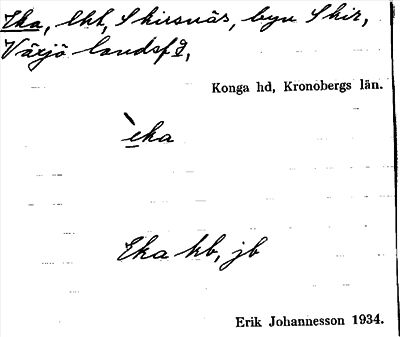 Eka, lht, Skirsnäs, byn Skir,
Växjö landsf d,
Konga hd, Kronobergs län.
èka
Eka hb, jb
Erik Johannesson 1934.